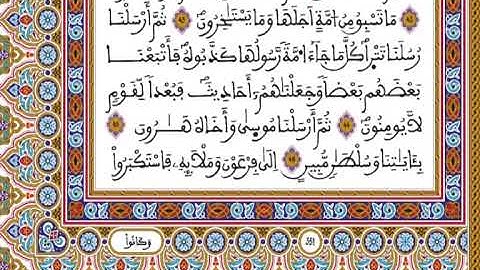 مَا تَسْبِقُ مِنُ اُمَّةٍ اَجَلَهَا وَمَا يَسْتَٰخِرُونَۖ ثُمَّ أَرْسَلْنَا
رُسُلَنَا تَتْرَا كُلَّ مَا جَآءَ اٰمَّةٗ رَّسُولُهَا كَذَّبُوهُۖ فَأَتْبَعْنَا
بَعْضَهُم بَعْضٗا وَجَعَلْنَٰهُمُۥٓ أَحَادِيثَۖ فَبُعْدٗا لِّقَوْمٖ
لَّا يُومِنُونَۖ ثُمَّ أَرْسَلْنَا مُوسِيٰ وَأَخَاهُ هَٰرُونَ
بِـَٔايَٰتِنَا وَسُلْطَٰنٖ مُّبِينٍ اِلَيٰ فِرْعَوْنَ وَمَلَإِيْهِۦ فَاسْتَكْبَرُواْ
وَكَانُواْ